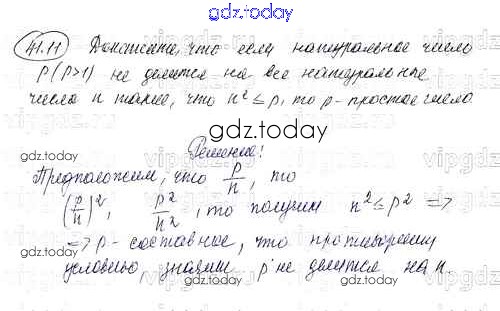 gdz.today
41.11 Докажите, что если натуральное число
p (p>1) не делится на все натуральные
числа n такие, что n² ≤ p, то p - простое число
gdz.today
Решение:
gdz.today
gdz.today
Предположим, что p/n, то
(p/n)², p²/n², то получим n² ≤ p² =>
=> p - составные, что противоречит
условию, значит p не делится на n.
gdz.today
gdz.today